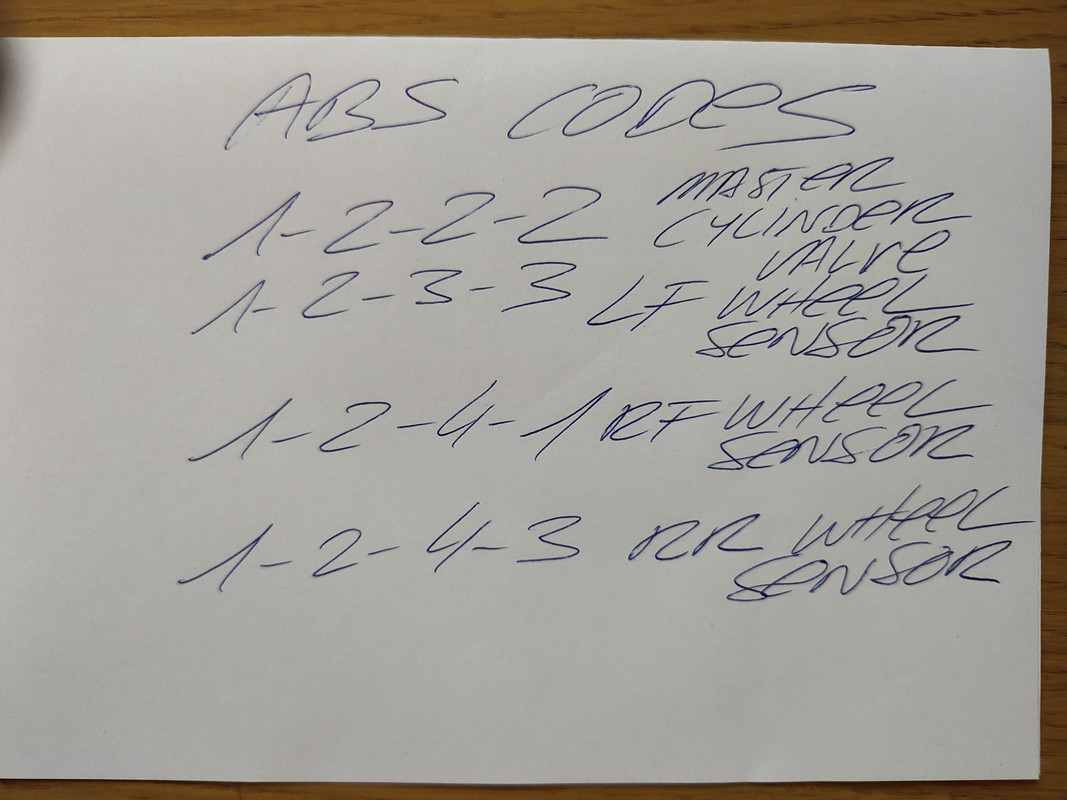 ABS CODES
1-2-2-2 MASTER
CYLINDER
VALVE
1-2-3-3 LF WHEEL
SENSOR
1-2-4-1 RF WHEEL
SENSOR
1-2-4-3 RR WHEEL
SENSOR